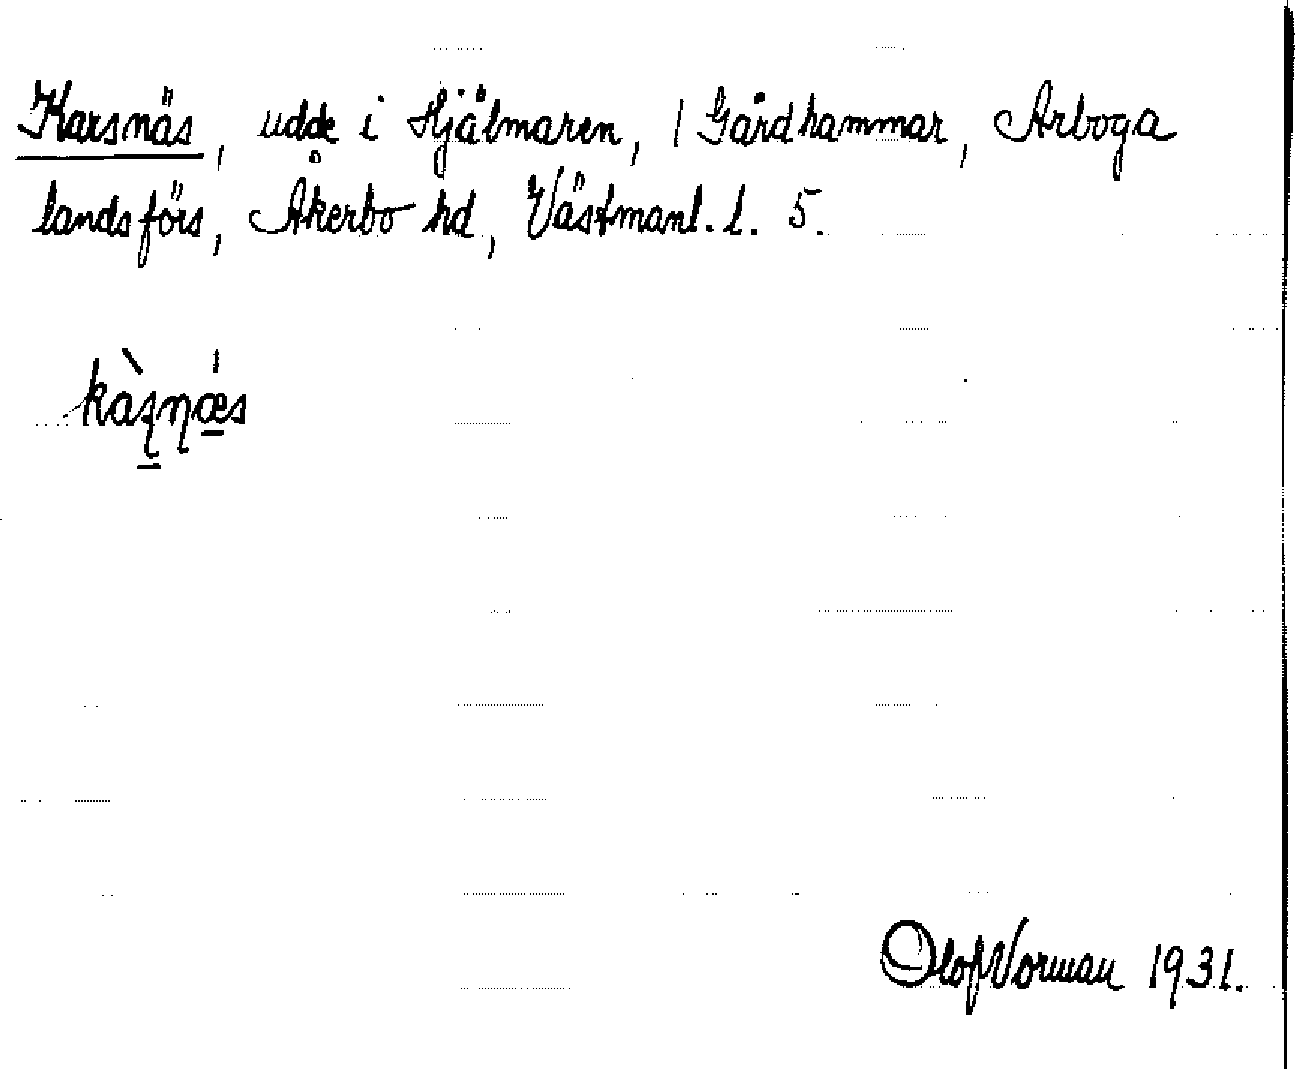 Karsnäs, udde i Hjälmaren, / Gårdhammar, Arboga
landsförs, Åkerbo hd, Västmanl. l. 5.
kàʂɳæs
Olof Vorman 1931.